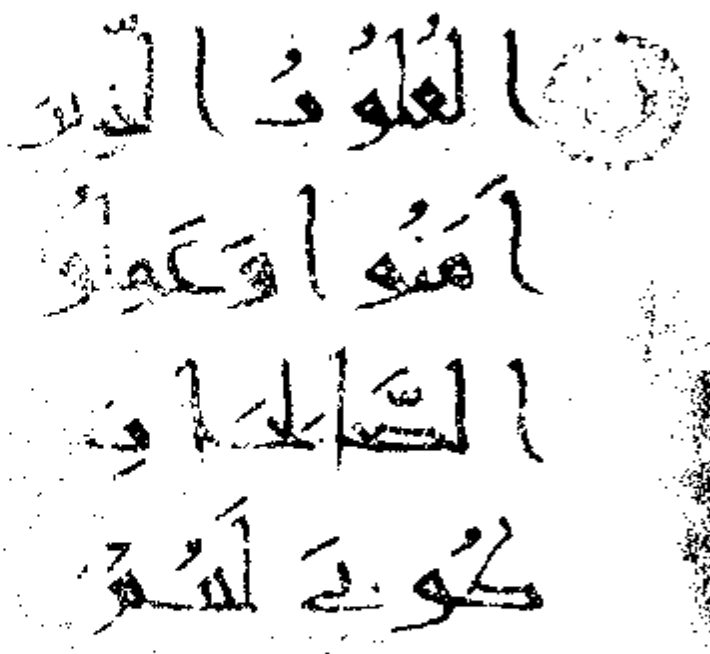 الْقُلُوبُ الَّذِينَ
اٰمَنُوا وَعَمِلُوا
الصَّالِحَاتِ
طُوبَى لَهُمْ